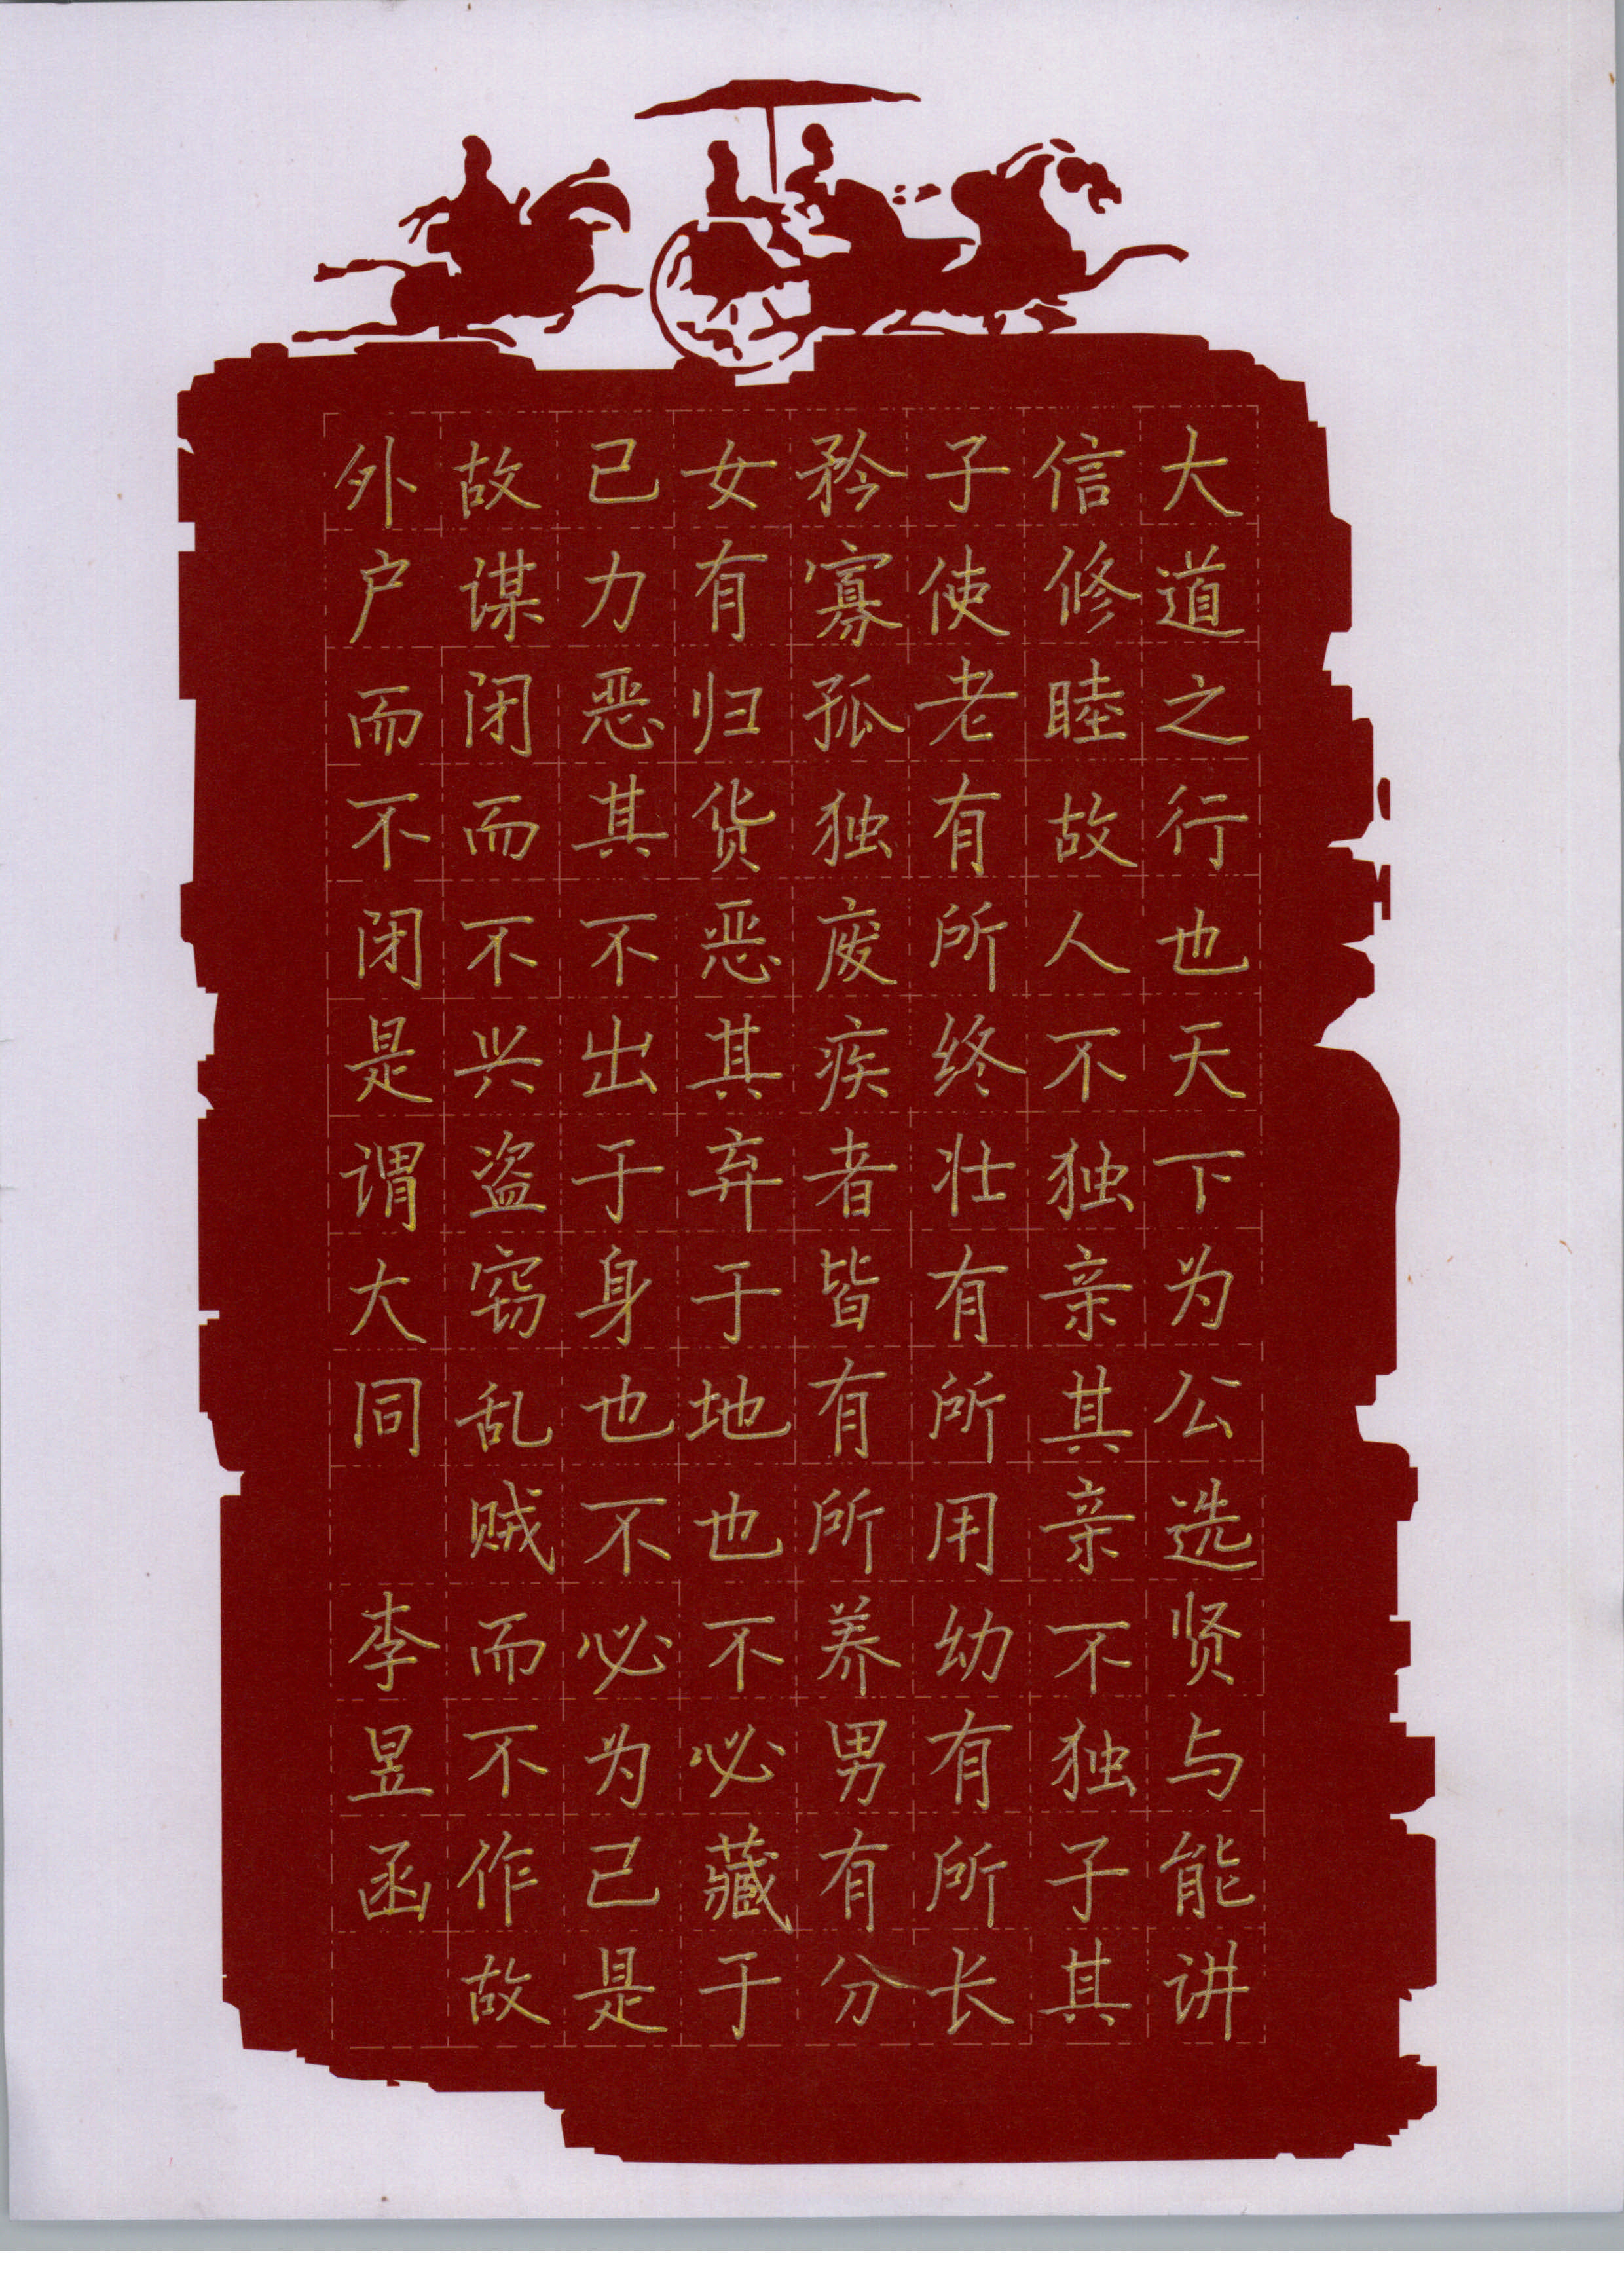 大道之行也天下为公选贤与能讲
信修睦故人不独亲其亲不独子其
子使老有所终壮有所用幼有所长
矜寡孤独废疾者皆有所养男有分
女有归货恶其弃于地也不必藏于
己力恶其不出于身也不必为己是
故谋闭而不兴盗窃乱贼而不作故
外户而不闭是谓大同 李昱函